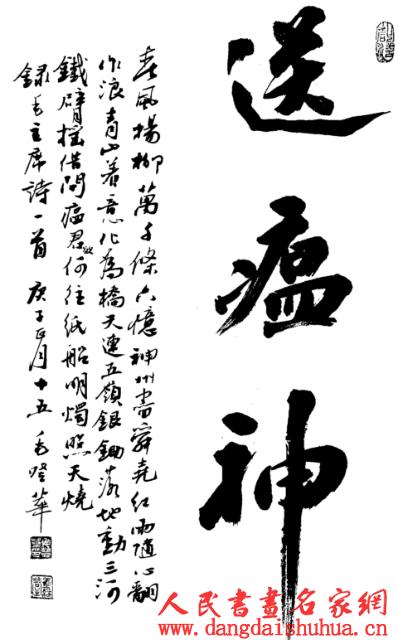 送瘟神
春風揚柳萬千條六憶神州盡舜堯紅雨隨心翻
作浪青山着意化為橋天連五嶺銀鋤落地動三河
鐵臂摇借問瘟君欲何往紙船明燭照天燒
録毛主席詩一首 庚子正月十五 毛登華
人民書畫名家網
www.dangdaishuhua.cn